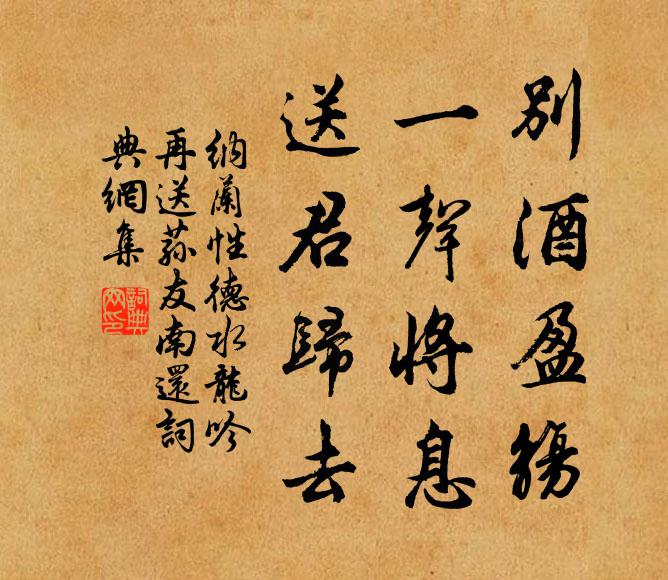 別酒盈觴
一聲將息
送君歸去
納蘭性德水龍吟
再送蓀友南還詞
典網集
詞典網印